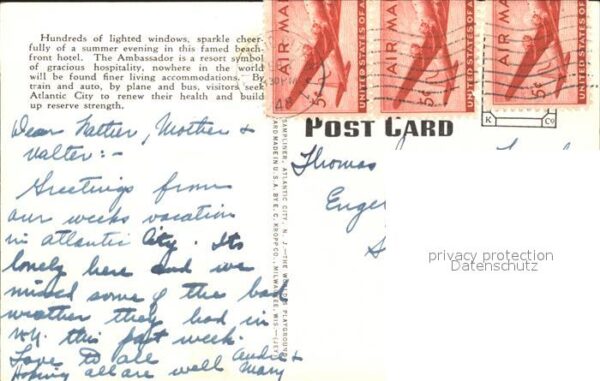 Hundreds of lighted windows, sparkle cheer-
fully of a summer evening in this famed beach-
front hotel. The Ambassador is a resort symbol
of gracious hospitality, nowhere in the world
will be found finer living accommodations. By
train and auto, by plane and bus, visitors seek
Atlantic City to renew their health and build
up reserve strength.
Dear Father, Mother &
Walter:-
Greetings from
our weeks vacation
in atlantic City. Its
lonely here and we
missed some of the bad
weather they had in
N.Y. this past week.
Love to all
Hoping all are well
Andre &
Mary
AIR MA
5¢
UNITED STATES OF A
AIR MAI
5¢
UNITED STATES OF A
AIR MAI
5¢
UNITED STATES OF A
48
POST CARD
K Co
SAMPLINER, ATLANTIC CITY, N. J.—THE WORLD'S PLAYGROUND
CARD MADE IN U.S.A. BY E. C. KROPP CO., MILWAUKEE, WIS.
Thomas
Enger
privacy protection
Datenschutz